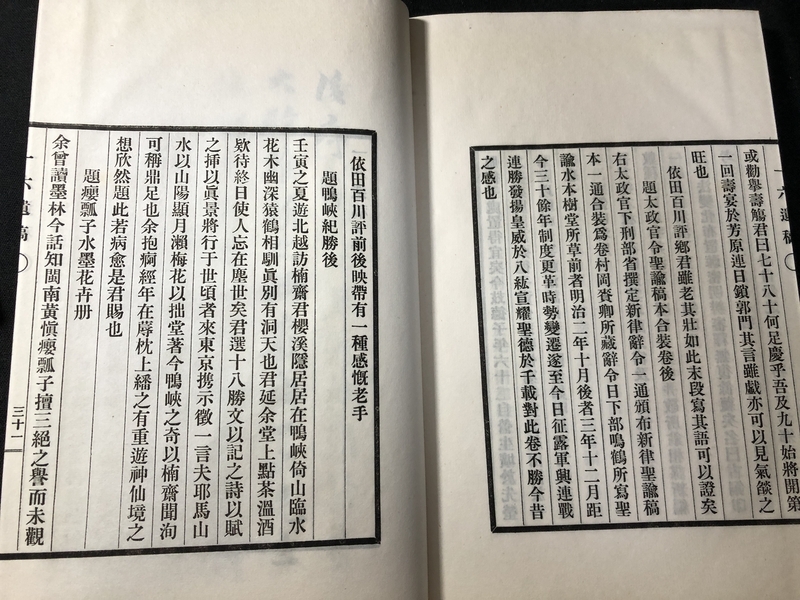 一六遺稿
或勸擧壽觴君曰七十八十何足慶乎吾及九十始將開第
一回壽宴於芳原連日鎖郭門其言雖戲亦可以見氣燄之
旺也
依田百川評鄉君雖老其壯如此末段寫其語可以證矣
題太政官令聖諭稿本合裝卷後
右太政官下刑部省撰定新律辭令一通頒布新律聖諭稿
本一通合裝爲卷村岡賚卿所藏辭令日下部鳴鶴所寫聖
諭水本樹堂所草前者明治二年十月後者三年十二月距
今三十餘年制度更革時勢變遷遂至今日征露軍興連戰
連勝發揚皇威於八紘宣耀聖德於千載對此卷不勝今昔
之感也
依田百川評前後映帶有一種感慨老手
題鴨峽紀勝後
壬寅之夏遊北越訪楠齋君櫻溪隱居居在鴨峽倚山臨水
花木幽深猿鶴相馴眞別有洞天也君延余堂上點茶溫酒
欵待終日使人忘在塵世矣君選十八勝文以記之詩以賦
之挿以眞景將行于世頃者來東京携示徵一言夫耶馬山
水以山陽顯月瀨梅花以拙堂著今鴨峽之奇以楠齋聞洵
可稱鼎足也余抱痾經年在蓐枕上繙之有重遊神仙境之
想欣然題此若病愈是君賜也
題癭瓢子水墨花卉册
余曾讀墨林今話知閩南黃愼癭瓢子擅三絕之譽而未觀
一六遺稿
三十一